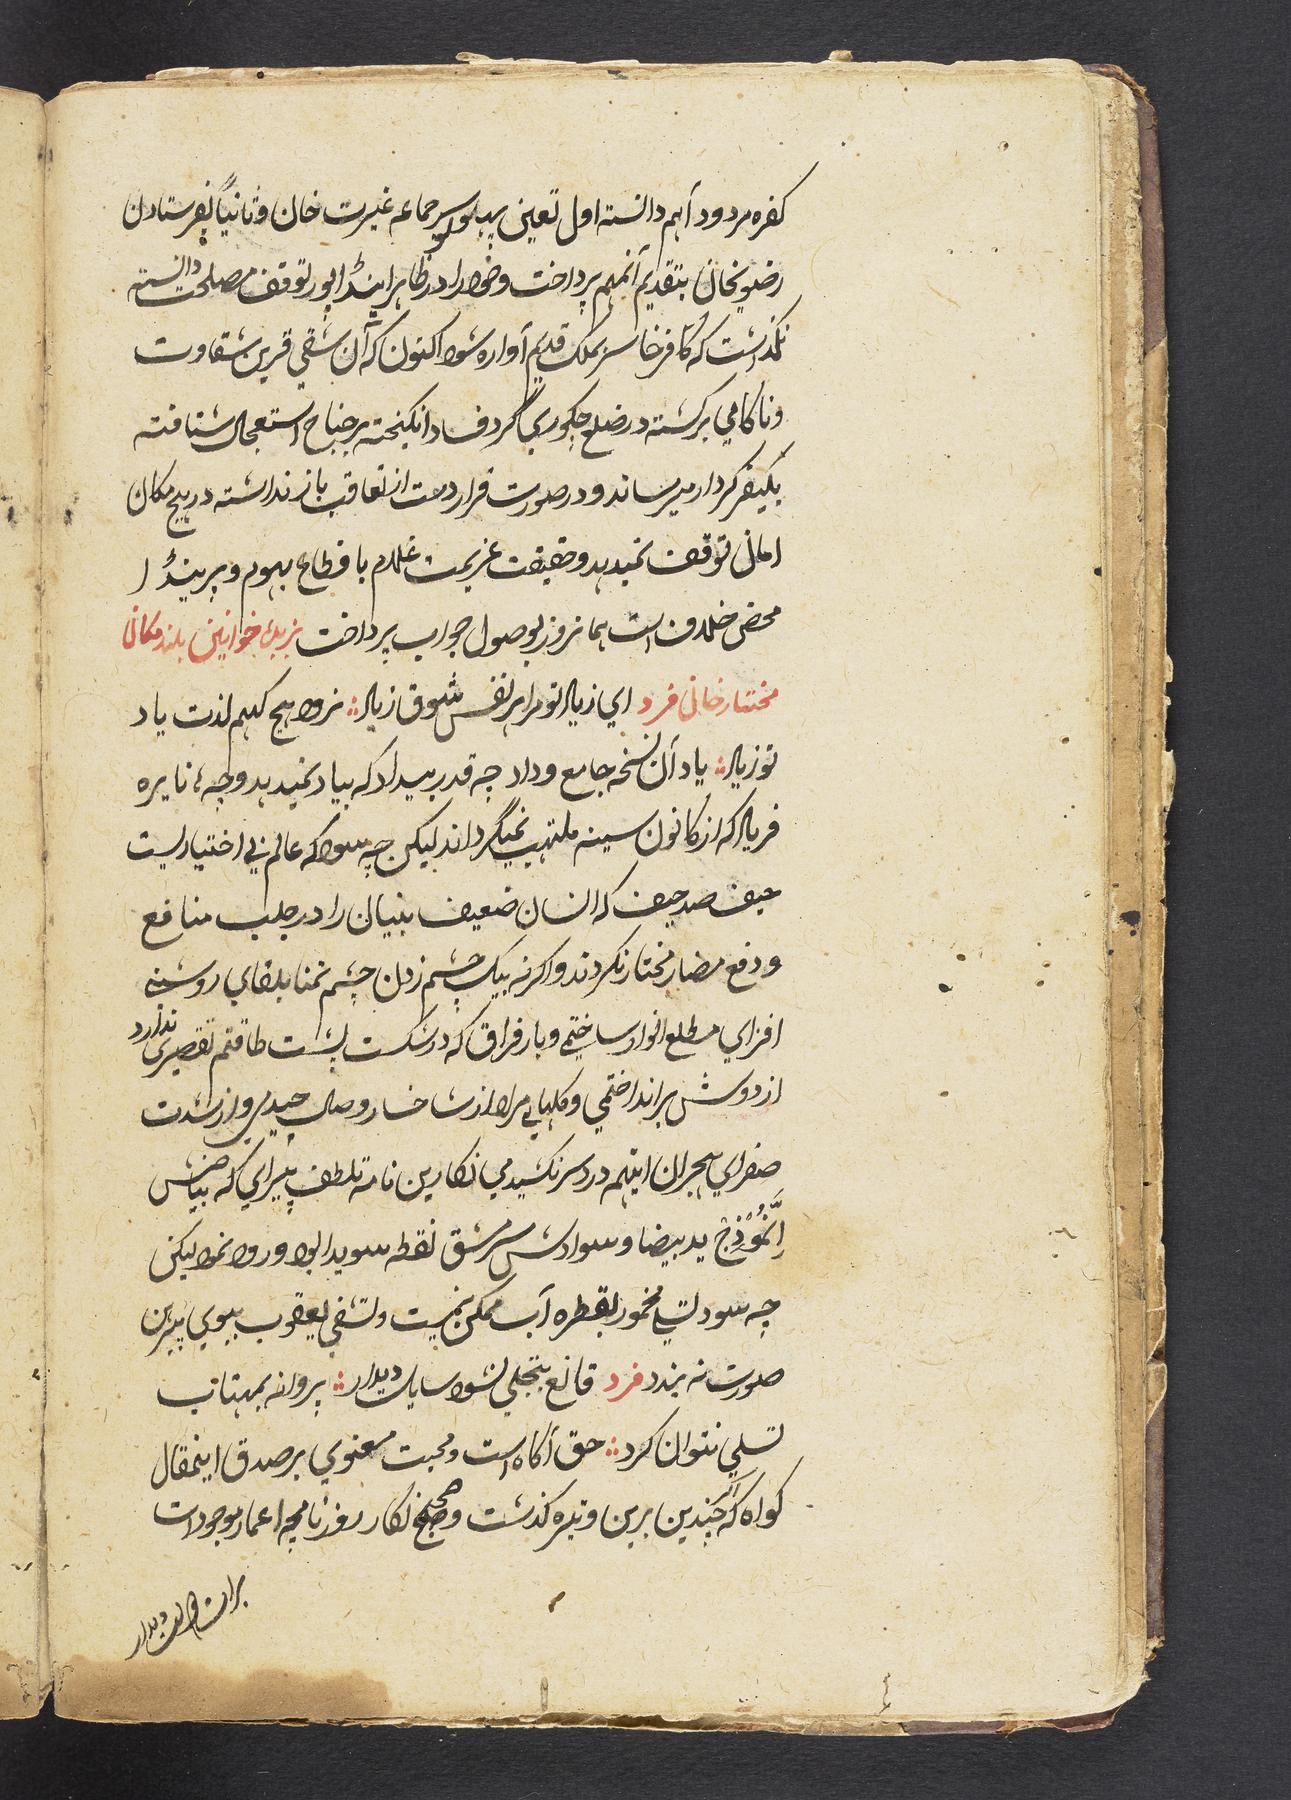 کفره مردود اهم دانسته اول تعین پهلو سر جماعه غیرت خان و ثانیاً بفرستادن
رضویخان بتقدیم آنمهم پرداخت و خود را در ظاهر توقف مصلحت دانسته
نگذاشت که کافر خاسر بملک قدیم آواره شود اکنون که آن شقی قرین شقاوت
و ناکامی برگشته در ضلع جکوری گرد فساد انگیخته بر جناح استعجال شتافته
بکیفر کردار میرساند و در صورت فرار دست از تعاقب باز نداشته در هیچ مکان
امان توقف نمیدهد و حقیقت عزیمت غلام با قطاع
محض خلاف است همانروز بوصول جواب پرداخت بزبدۀ خوانین بلند مکان
مختار خان فرد ای زیاد تو مرا هر نفس شوق زیاد نرود هیچ کهم لذت یاد
تو زیاد یاد آن نسخه جامع وداد چه قدر بیداد که بیاد نمیدهد و چه نایره
فریاد که از کانون سینه ملتهب نمیگرداند لیکن چه سود که عالم بی اختیاریست
حیف صد حیف که انسان ضعیف بنیان را در جلب منافع
و دفع مضار مختار نکردند و اگرنه بیک چشم زدن چشم تمنا بلقای روشنی
افزای مطلع انوار ساختمی و بار فراق که در شکست پشت طاقتم تقصیری ندارد
از دوش برانداختمی و گلهای مراد از شاخسار وصال چیدمی و از شدت
صفرای هجران اینهم دردسر نکشیدمی نگارین نامه تلطف پیرای که بیاضش
اِنَّمُوْذِجْ ید بیضا و سوادش سرمشق نقطه سویدا بود ورود نمود لیکن
چه سود تسلی مخمور بقطره آب ممکن نیست و تشفی یعقوب ببوی پیرهن
صورت نه بندد فرد قانع بتجلی نشود سایل دیدار پروانه بمهتاب
تسلی نتوان کرد حق آگاه است و محبت معنوی بر صدق اینمقال
گواه که اگر چندین برین وتیره گذشت و صحیح نگار روزنامچه اعمار موجودات
برات دیدار